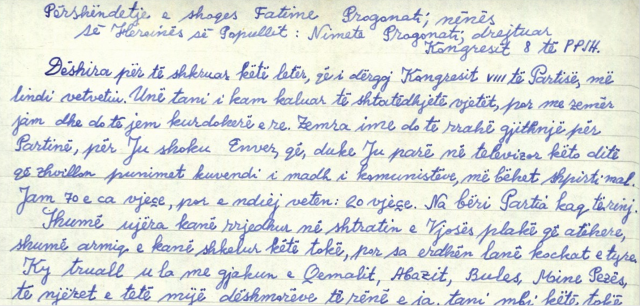 Përshëndetje e shoges Fatime Progonati, nënës
së Heroinës së Popullit: Nimete Progonati, drejtuar
Kongresit 8 të PPSH.
Dëshira për të shkruar këtë letër, që i dërgoj Kongresit VIII të Partisë, më
lindi vetvetiu. Unë tani i kam kaluar të shtatëdhjetë vjetët, por me zemër
jam dhe do të jem kurdoherë e re. Zemra ime do të rrahë gjithnjë për
Partinë, për Ju shoku Enver, që, duke Ju parë në televizor këto ditë
që zhvillon punimet kuvendi i madh i komunistëve, më bëhet shpirti mal.
Jam 70 e ca vjeçe, por e ndiej veten: 20 vjeçe. Na bëri Partia kaq të rinj.
Shumë ujëra kanë rrjedhur në shtratin e Vjosës plakë që atëhere,
shumë armiq e kanë shkelur këtë tokë, por sa erdhën lanë kockat e tyre.
Ky truall u la me gjakun e Qemalit, Abazit, Bules, Mine Pezës,
të njëzet e tetë mijë dëshmorëve të rënë e ja, tani mbi këtë tokë